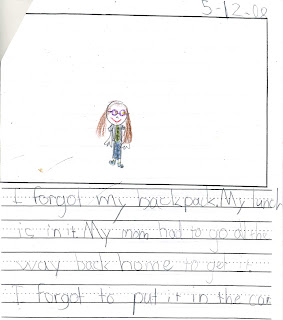 5-12-08
I forgot my backpack. My lunch
is in it. My mom had to go all the
way back home to get
I forgot to put it in the car